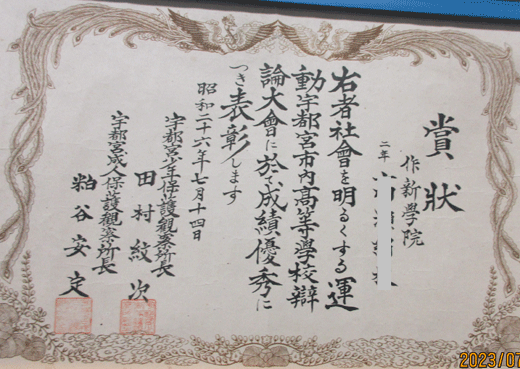 賞狀
作新學院
二年
右者社會を明るくする運
動宇都宮市内高等學校辯
論大會に於て成績優秀に
つき表彰します
昭和二十六年七月十四日
宇都宮少年保護観察所長
田村紋次
宇都宮成人保護観察所長
粕谷安定
2023/07